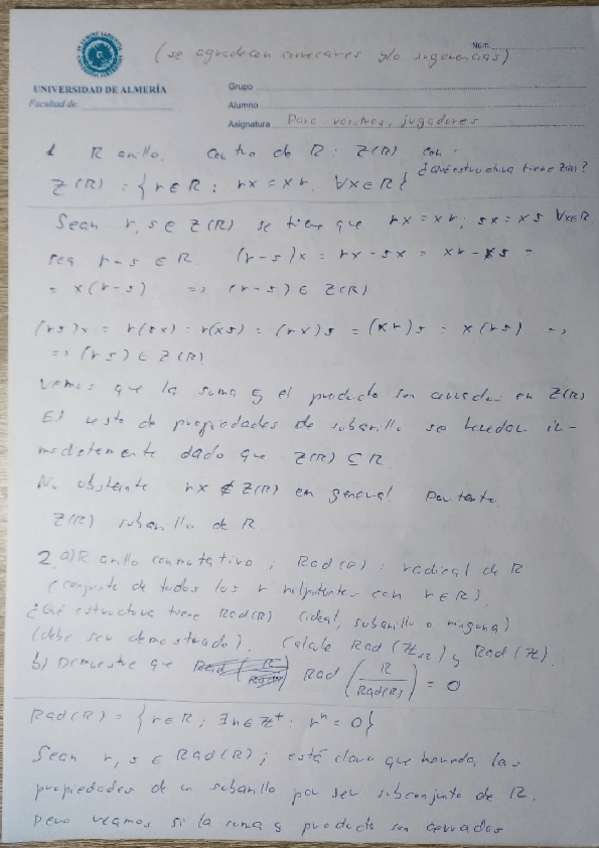 Núm.
(se agradecen correcciones y/o sugerencias)
UNIVERSIDAD DE ALMERÍA
Facultad de:
Grupo
Alumno
Asignatura Para vosotros, jugadores
1. R anillo. Centro de R: Z(R) con
¿Qué estructura tiene Z(R)?
Z(R) = {r∈R : rx = xr, ∀x∈R}
Sean r, s ∈ Z(R) se tiene que rx = xr; sx = xs ∀x∈R
sea r-s ∈ R. (r-s)x = rx-sx = xr-xs =
= x(r-s) => (r-s) ∈ Z(R)
(rs)x = r(sx) = r(xs) = (rx)s = (xr)s = x(rs) =>
=> (rs) ∈ Z(R)
vemos que la suma y el producto son cerrados en Z(R)
El resto de propiedades de subanillo se heredan in-
mediatamente dado que Z(R) ⊆ R.
No obstante rx ∉ Z(R) en general. Por tanto
Z(R) subanillo de R.
2. a) R anillo conmutativo; Rad(R): radical de R
(conjunto de todos los r nilpotentes con r∈R).
¿Qué estructura tiene Rad(R) (ideal, subanillo o ninguna)
(debe ser demostrado). Calcule Rad(ℤ₁₂) y Rad(ℤ).
b) Demuestre que Rad(R/Rad(R)) = 0
Rad(R) = {r∈R; ∃n∈ℤ⁺: rⁿ = 0}
Sean r, s ∈ Rad(R); está claro que hereda las
propiedades de un subanillo por ser subconjunto de R.
Pero veamos si la suma y producto son cerrados